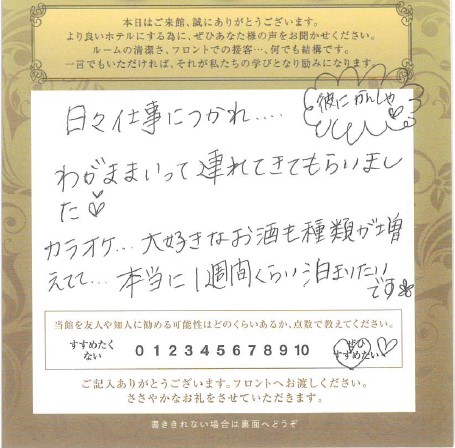 本日はご来館、誠にありがとうございます。
より良いホテルにする為に、ぜひあなた様の声をお聞かせください。
ルームの清潔さ、フロントでの接客…、何でも結構です。
一言でもいただければ、それが私たちの学びとなり励みになります。
彼にかんしゃ
日々仕事につかれ....
わがままいって連れてきてもらいまし
た♡
カラオケ...大好きなお酒も種類が増
えてて...本当に1週間くらい泊まりたい
です
当館を友人や知人に勧める可能性はどのくらいあるか、点数で教えてください。
すすめたく
ない
0 1 2 3 4 5 6 7 8 9 10
ぜひ
すすめたい
ご記入ありがとうございます。フロントへお渡しください。
ささやかなお礼をさせていただきます。
書ききれない場合は裏面へどうぞ